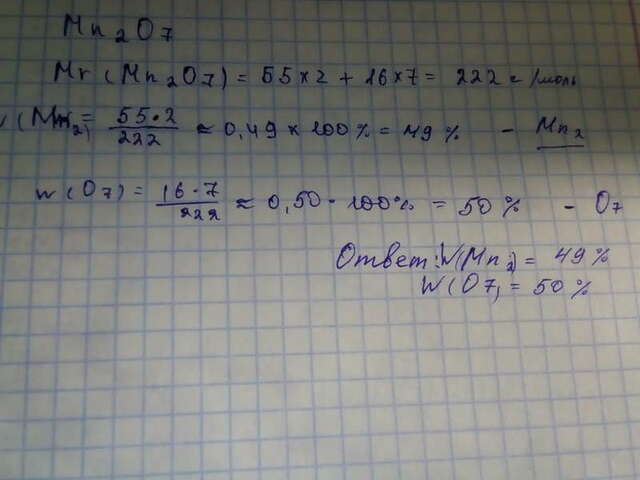 Mn₂O₇
Mr (Mn₂O₇) = 55×2 + 16×7 = 222 г/моль
w (Mn₂) = 55·2/222 ≈ 0,49 × 100% = 49% - Mn₂
w (O₇) = 16·7/222 ≈ 0,50 · 100% = 50% - O₇
Ответ: W(Mn₂) = 49%
W(O₇) = 50%